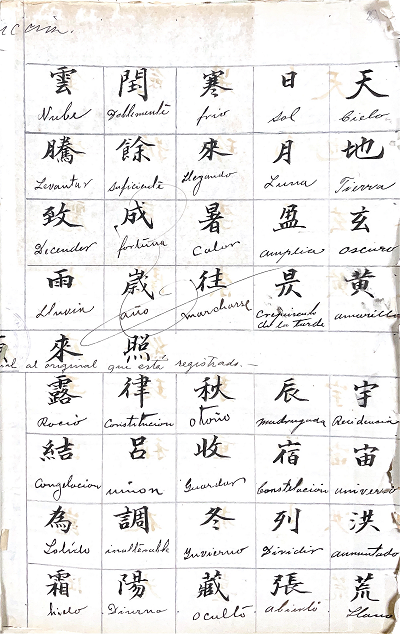 雲 閏 寒 日 天
Nube Doblemente frio Sol Cielo
騰 餘 來 月 地
Levantar Suficiente Llegando Luna Tierra
致 成 暑 盈 玄
Decender fortuna Calor amplia oscuro
雨 歲 往 昃 黃
Lluvia año marcharse Crepusculo de la tarde amarillo
來 照
al original que está registrado.—
露 律 秋 辰 宇
Rocio Constitucion Otoño Madrugada Recidencia
結 呂 收 宿 宙
Congelacion Guardar Constelación universo
為 調 冬 列 洪
inalterable Ynvierno Dividir aumentado
霜 陽 藏 張 荒
hielo Diurna Ocultó abierto Llano